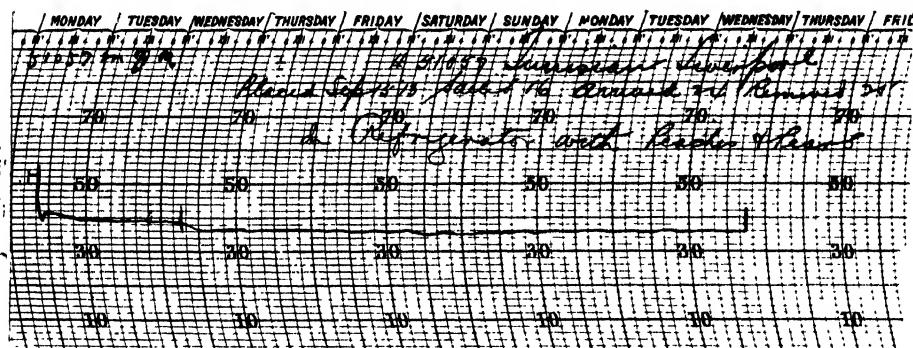 MONDAY TUESDAY WEDNESDAY THURSDAY FRIDAY SATURDAY SUNDAY MONDAY TUESDAY WEDNESDAY THURSDAY FRI
51057 Liverpool
Placed Sep 15 Sailed 16 Arrived 24 Removed
70 70 70 70 70 70
In Refrigerator with Peaches & Pears
50 50 50 50 50 50
30 30 30 30 30 30
10 10 10 10 10 10